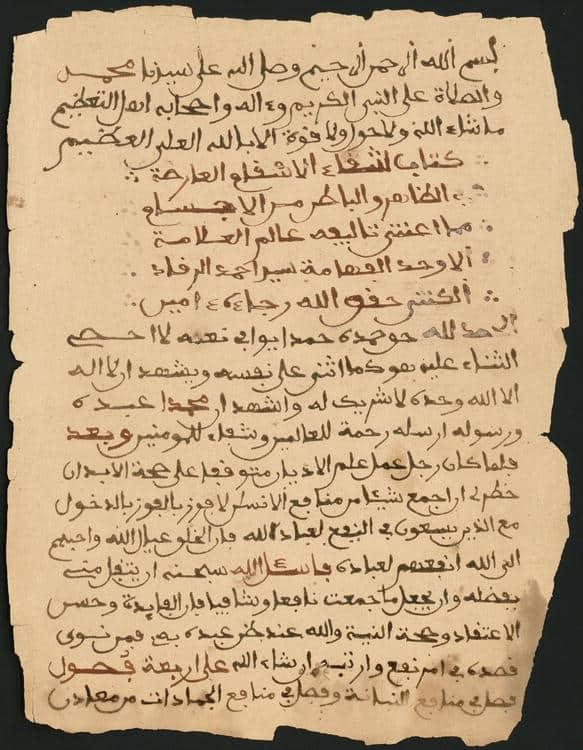 بسم الله الرحمن الرحيم وصلى الله على سيدنا محمد
والصلاة على النبي الكريم وءاله واصحابه اهل التعظيم
ما شاء الله ولا حول ولا قوة الا بالله العلي العظيم
كتاب شفاء الاسقام العارضة
في الظاهر والباطن من الاجسام
مما اعتنى تاليفه عالم العلامة
الاوحد الفهامة سيد احمد الرقاد
الكنتي حقق الله رجاءه ءامين
الحمد لله حق حمده حمدا يوافي نعمه لا احصي
الثناء عليه هو كما اثنى على نفسه ويشهد ان لا اله
الا الله وحده لا شريك له واشهد ان محمدا عبده
ورسوله ارسله رحمة للعالمين وشفاء للمومنين وبعد
فلما كان رجل عمل علم الاديان متوقفا على صحة الابدان
خطر لي ان اجمع شيئا من منافع الانسان لافوز بالفوز بالدخول
مع الذين يسعون في النفع لعباد الله فان الخلق عيال الله واحبهم
الى الله انفعهم لعباده فاسئل الله سبحنه ان يتقبل مني
بفضله وان يجعل ما جمعت نافعا وشافيا فان الفايدة وحسن
الاعتقاد وصحة النية والله عند ظن عبده به فمن نوى
قصده في امر نفع وارتبه ان شاء الله على اربعة فصول
فصل في منافع النباتة وفصل في منافع الجمادات من معادن